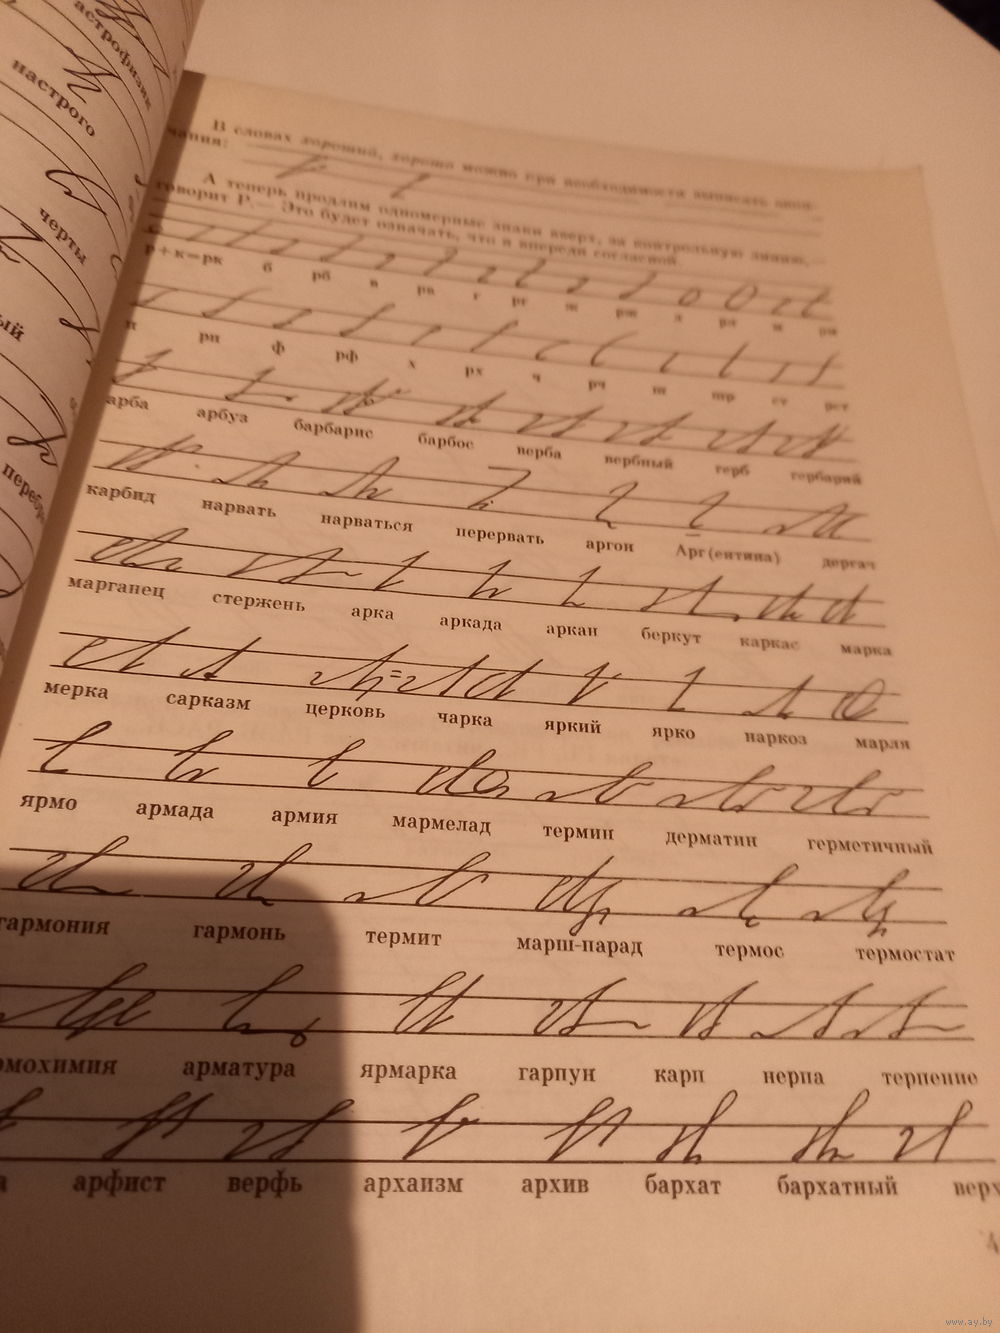 астрофизик
настрого
черты
ый
перебр
В словах хороший, хорошо можно при необходимости выписать окон-
чания:
А теперь продлим одномерные знаки вверх, за контрольную линию,—
говорит Р.— Это будет означать, что я впереди согласной
р+к=рк б рб в рв г рг ж рж л рл м рм
п рп ф рф х рх ч рч ш шр ст рст
арба арбуз барбарис барбос верба вербный герб гербарий
карбид нарвать нарваться перервать аргон Арг(ентина) дергач
марганец стержень арка аркада аркан беркут каркас марка
мерка сарказм церковь чарка яркий ярко наркоз марля
ярмо армада армия мармелад термин дерматин герметичный
гармония гармонь термит марш-парад термос термостат
рмохимия арматура ярмарка гарпун карп нерпа терпение
а арфист верфь архаизм архив бархат бархатный верх
www.ay.by